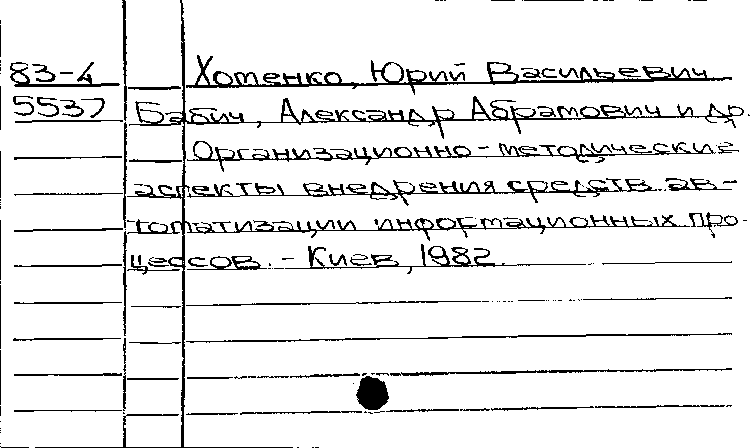 83-4 Хоменко, Юрий Васильевич
5537 Бабич, Александр Абрамович и др.
Организационно-методические
аспекты внедрения средств ав-
томатизации информационных про-
цессов. - Киев, 1982.